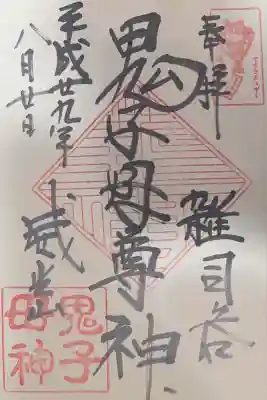 奉拝
雑司谷
鬼子母尊神
平成廿九年
八月廿日
鬼子
母神